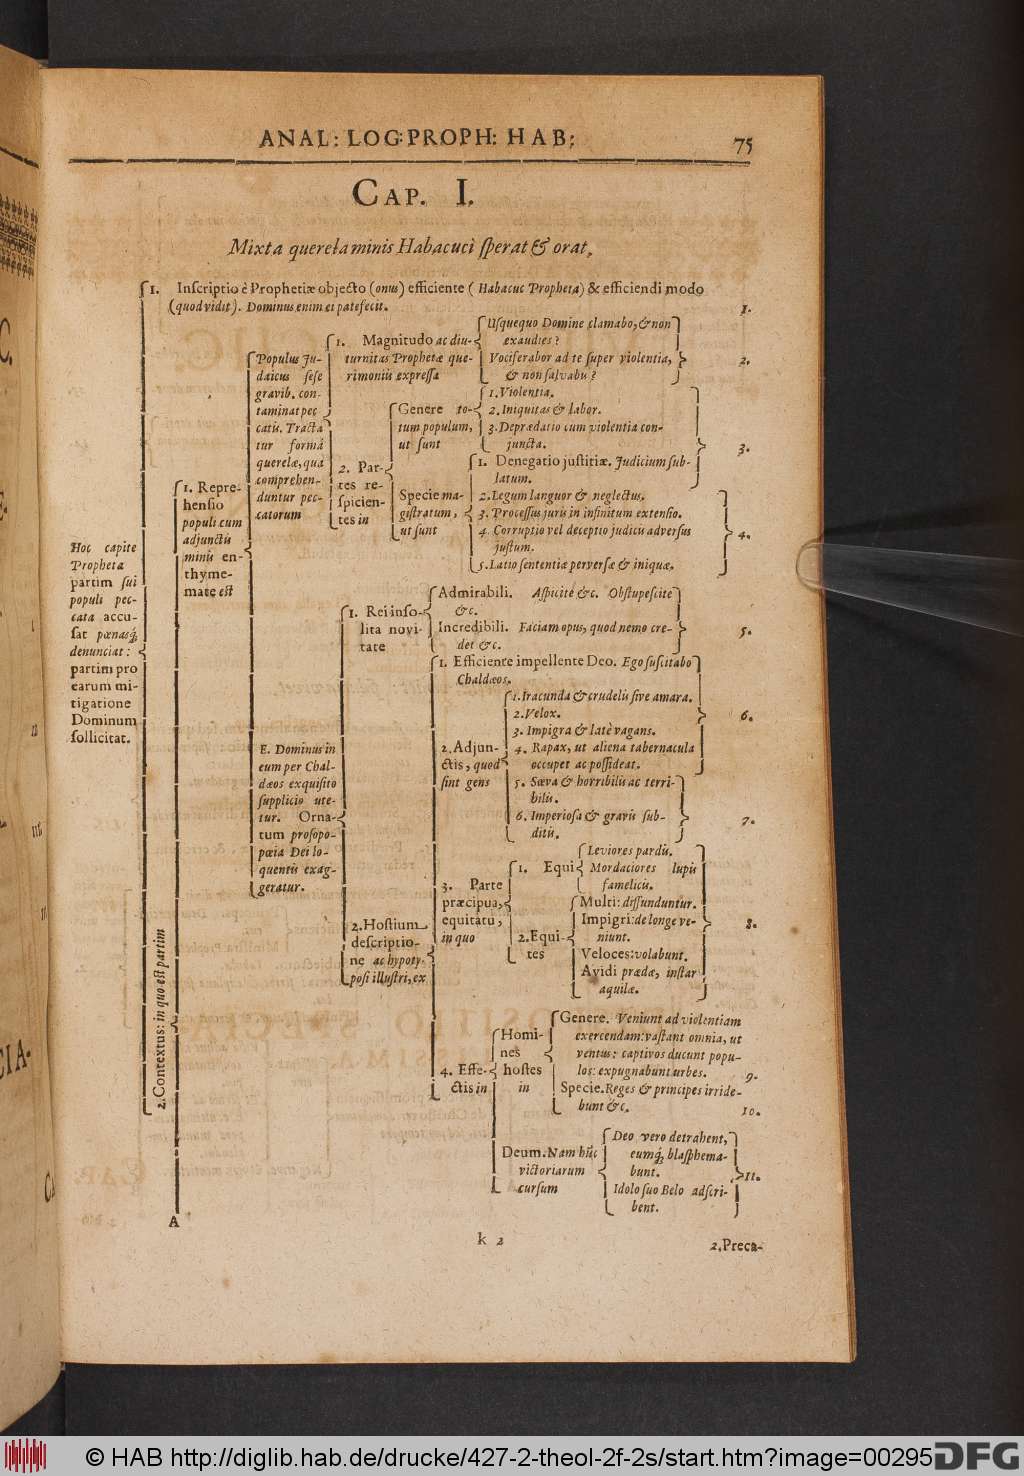 ANAL: LOG: PROPH: HAB:
75
CAP. I.
Mixta querela minis Habacuci sperat & orat.
1. Inscriptio è Prophetiæ objecto (onus) efficiente (Habacuc Propheta) & efficiendi modo
(quod vidit). Dominus enim ei patefecit.
1.
Hoc capite
Propheta
partim sui
populi pec-
cata accu-
sat pœnasq́;
denunciat:
partim pro
earum mi-
tigatione
Dominum
sollicitat.
2. Contextus: in quo est partim
1. Repre-
hensio
populi cum
adjunctis
minis en-
thyme-
mate est
Populus Ju-
daicus sese
gravib. con-
taminat pec
catis. Tracta
tur formâ
querelæ, quâ
comprehen-
duntur pec-
catorum
1. Magnitudo ac diu-
turnitas Prophetæ que-
rimoniis expressa
Usquequo Domine clamabo, & non
exaudies?
Vociferabor ad te super violentia,
& non salvabis?
2.
2. Par-
tes re-
spicien-
tes in
Genere to-
tum populum,
ut sunt
1. Violentia.
2. Iniquitas & labor.
3. Deprædatio cum violentia con-
juncta.
3.
Specie ma-
gistratum,
ut sunt
1. Denegatio justitiæ. Judicium sub-
latum.
2. Legum languor & neglectus.
3. Processus juris in infinitum extensio.
4. Corruptio vel deceptio judicis adversus
justum.
5. Latio sententiæ perversæ & iniquæ.
4.
E. Dominus in
eum per Chal-
dæos exquisito
supplicio ute-
tur. Orna-
tum prosopo-
pœia Dei lo-
quentis exag-
geratur.
1. Rei inso-
lita novi-
tate
Admirabili. Aspicite &c. Obstupescite
&c.
Incredibili. Faciam opus, quod nemo cre-
det &c.
5.
2. Hostium
descriptio-
ne ac hypoty-
posi illustri, ex
1. Efficiente impellente Deo. Ego suscitabo
Chaldæos.
2. Adjun-
ctis, quod
sint gens
1. Iracunda & crudelis sive amara.
2. Velox.
3. Impigra & latè vagans.
4. Rapax, ut aliena tabernacula
occupet ac possideat.
6.
5. Sæva & horribilis ac terri-
bilis.
6. Imperiosa & gravis sub-
ditis.
7.
3. Parte
præcipua,
equitatu,
in quo
1. Equi
Leviores pardis.
Mordaciores lupis
famelicis.
2. Equi-
tes
Multi: diffunduntur.
Impigri: de longe ve-
niunt.
Veloces: volabunt.
Avidi prædæ, instar
aquilæ.
8.
4. Effe-
ctis in
Homi-
nes
hostes
in
Genere. Veniunt ad violentiam
exercendam: vastant omnia, ut
ventus: captivos ducunt popu-
los: expugnabunt urbes.
9.
Specie. Reges & principes irride-
bunt &c.
10.
Deum. Nam hûc
victoriarum
cursum
Deo vero detrahent,
eumq́; blasphema-
bunt.
Idolo suo Belo adscri-
bent.
11.
A
k 2
2. Preca-
© HAB http://diglib.hab.de/drucke/427-2-theol-2f-2s/start.htm?image=00295
DFG